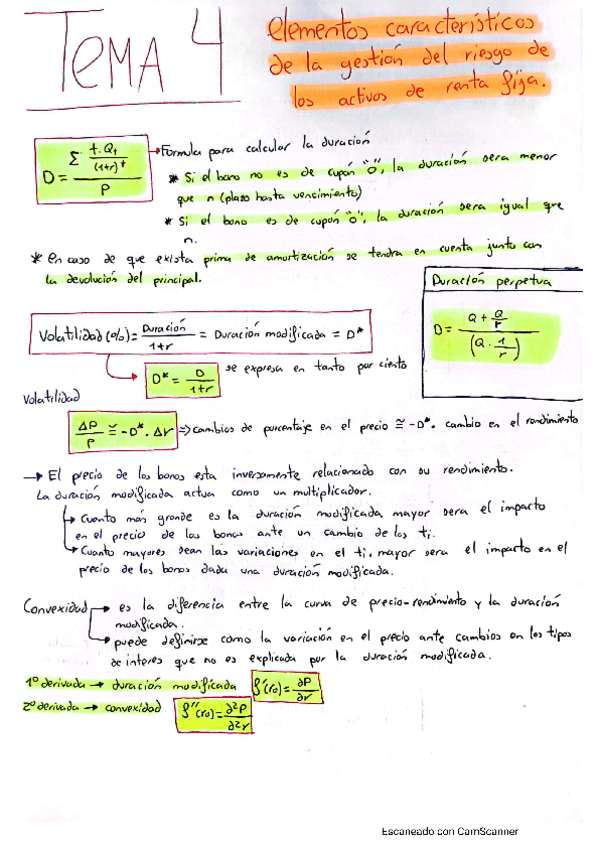 TEMA 4
elementos característicos
de la gestión del riesgo de
los activos de renta fija.
D = Σ t·Qt/(1+r)^t / P → Fórmula para calcular la duración
* Si el bono no es de cupón "0", la duración sera menor
que n (plazo hasta vencimiento)
* Si el bono es de cupón "0", la duración sera igual que
n.
* en caso de que exista prima de amortización se tendra en cuenta junto con
la devolución del principal.
Duración perpetua
D = Q + Q/r / (Q · 1/r)
Volatilidad (%) = Duración/1+r = Duración modificada = D*
D* = D/1+r se expresa en tanto por ciento
Volatilidad
ΔP/P ≅ -D* · Δr ⇒ cambios de porcentaje en el precio ≅ -D* · cambio en el rendimiento
→ El precio de los bonos esta inversamente relacionado con su rendimiento.
La duración modificada actua como un multiplicador.
↳ Cuanto más grande es la duración modificada mayor sera el impacto
en el precio de los bonos ante un cambio de los ti.
↳ Cuanto mayores sean las variaciones en el ti, mayor sera el impacto en el
precio de los bonos dada una duración modificada.
Convexidad → es la diferencia entre la curva de precio-rendimiento y la duración
modificada.
→ puede definirse como la variación en el precio ante cambios en los tipos
de interes que no es explicada por la duración modificada.
1º derivada → duración modificada f'(r₀) = ∂P/∂r
2º derivada → convexidad f''(r₀) = ∂²P/∂²r
Escaneado con CamScanner